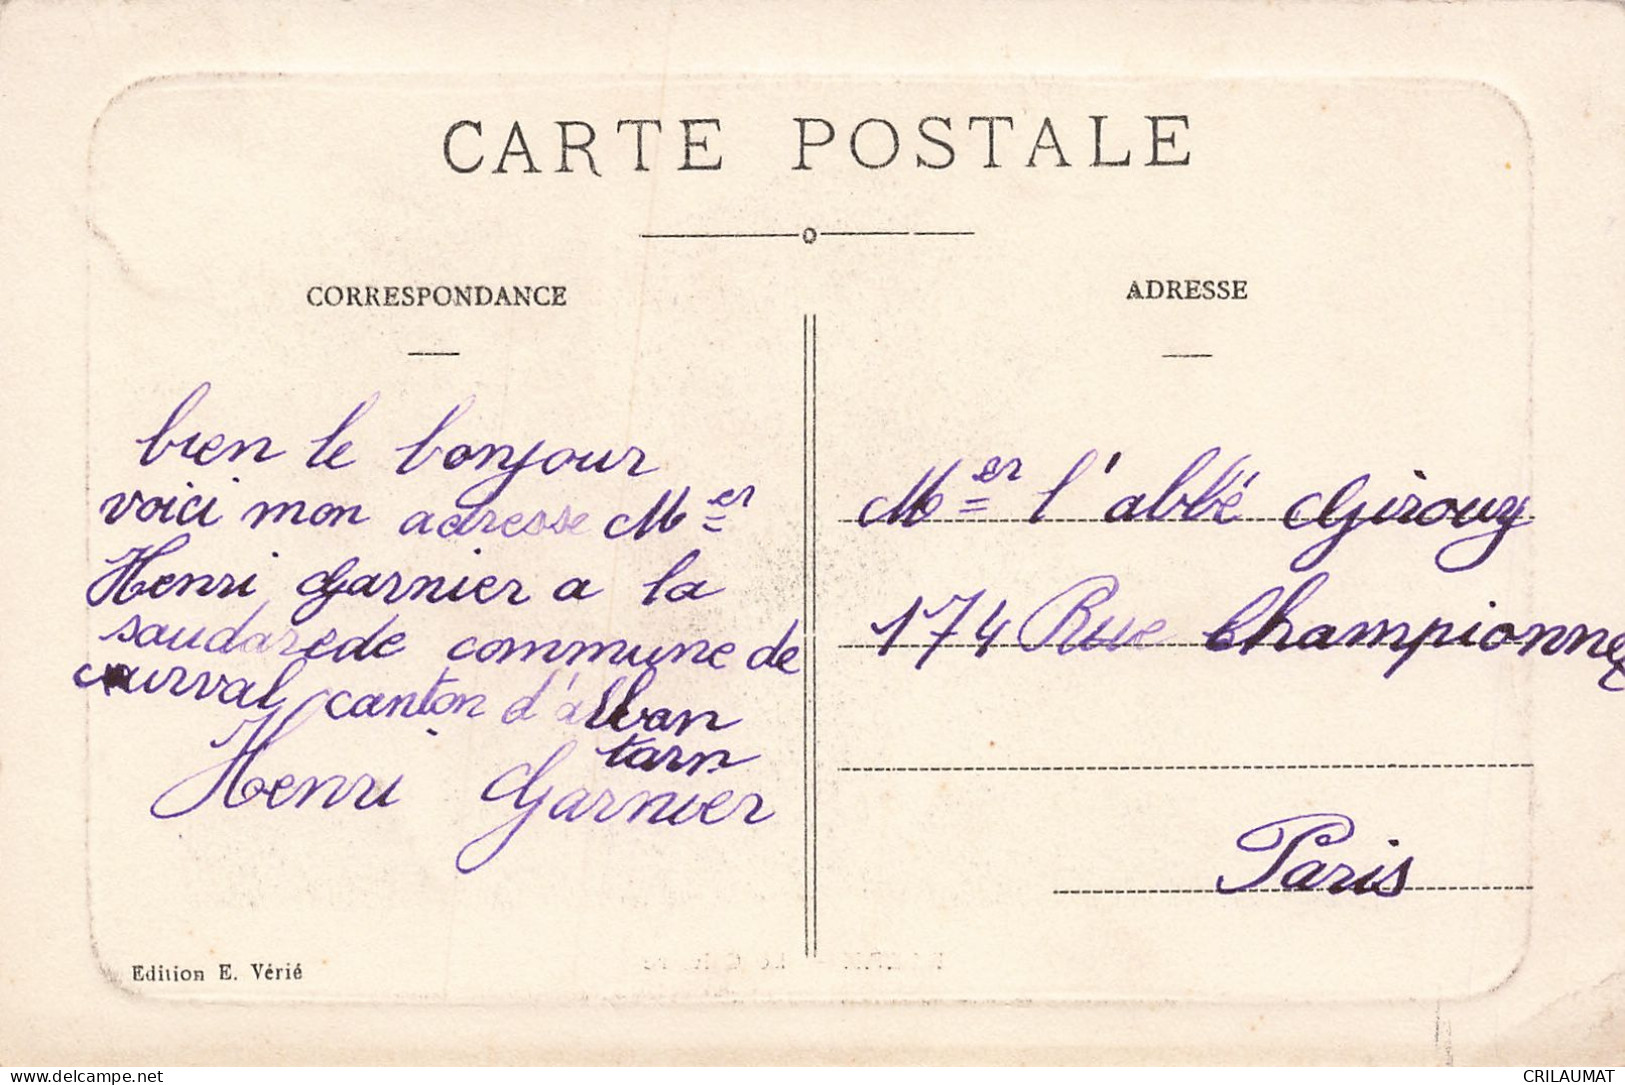 CARTE POSTALE
CORRESPONDANCE
bien le bonjour
voici mon adresse Mer
Henri Garnier a la
saudarede commune de
curval canton d'alban
tarn
Henri Garnier
Edition E. Vérié
ADRESSE
Mer l'abbé Girouy
174 Rue Championnet
Paris
delcampe.net
CRILAUMAT